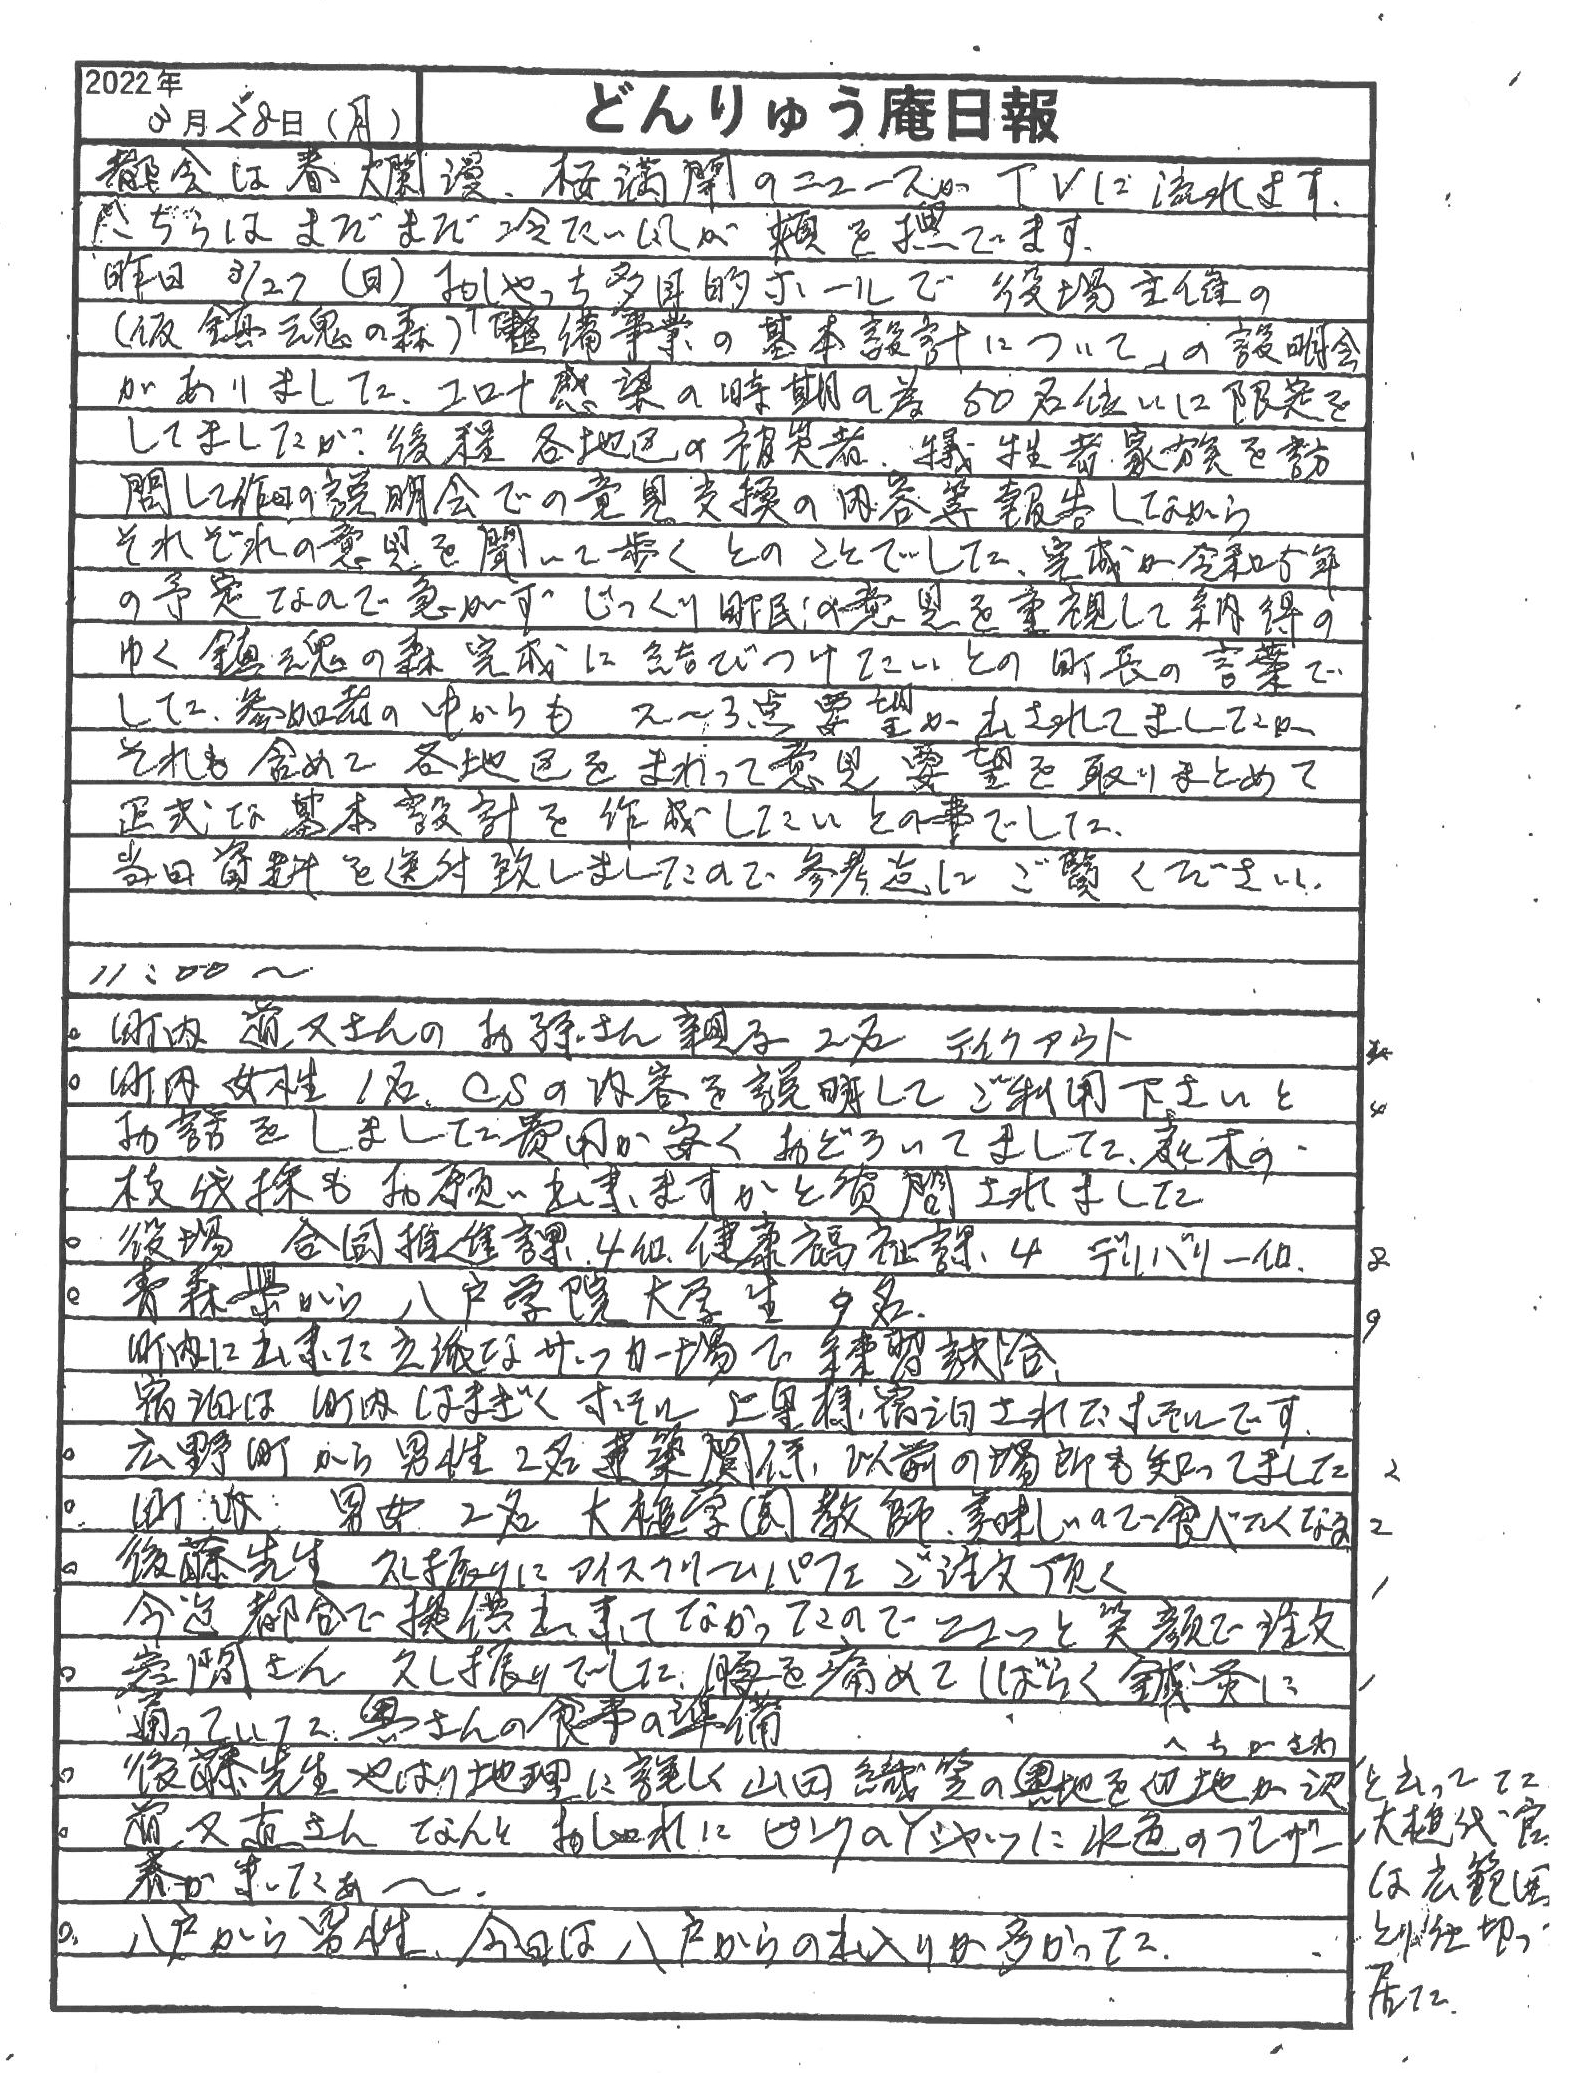 2022年
3月28日(月)
どんりゅう庵日報
都会は春爛漫、桜満開のニュースがTVに流れます。
こちらはまだまだ冷たい風が頬を撫でます。
昨日 3/27(日)おしゃっち多目的ホールで 役場主催の
(仮 鎮魂の森)「整備事業の基本設計について」の説明会
がありました。コロナ感染の時期の為 50名位いに限定を
してましたが、後程 各地区の被災者、犠牲者家族を訪
問して昨日の説明会での意見交換の内容等報告しながら
それぞれの意見を聞いて歩くとのことでした、完成が令和5年
の予定なので急がずじっくり町民の意見を重視して納得の
ゆく鎮魂の森完成に結びつけたいとの町長の言葉で
した、参加者の中からも 2〜3点要望が出されてましたが
それも含めて各地区をまわって意見要望を取りまとめて
正式な基本設計を作成したいとの事でした、
当日資料を送付致しましたので参考迄にご覧ください。
11:00〜
○町内 道又さんのお孫さん親子2名 テイクアウト
○町内女性1名、CSの内容を説明してご利用下さいと 4
お誘をしました費用が安くおどろいてました、庭木の
枝伐採もお願い出来ますかと質問されました
○役場 合同推進課、4個、健康福祉課、4 デリバリー個、 8
○青森県から八戸学院大学生 9名、 9
町内に出来た立派なサッカー場で練習試合、
宿泊は町内はまぎくホテル 上皇様、宿泊されたホテルです
○広野町から男性2名建築関係、以前の場所も知ってました 2
○町内 男女 2名 大槌学園教師、美味しいので食べたくなる 2
○後藤先生 久し振りにアイスクリームパフェご注文頂く 1
今迄都合で提供出来てなかったのでニコっと笑顔で注文
○さん 久し振りでした、腰を痛めてしばらく鍼灸に 1
通っていた、奥さんの食事の準備
へちがさわ
○後藤先生やはり地理に詳しく山田織笠の奥地を辺地が沢 と云ってた
○道又さん なんとおしゃれにピンクのYシャツに水色のブレザー
春が来たあ〜。
○八戸から男性、今日は八戸からの出入りが多かった。
大槌代官
は広範囲
とり仕切っ
居た。